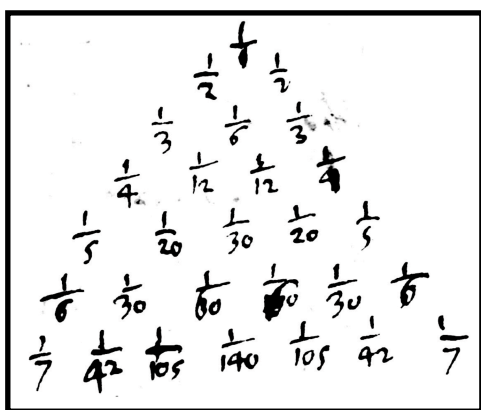 1/1
1/2 1/2
1/3 1/6 1/3
1/4 1/12 1/12 1/4
1/5 1/20 1/30 1/20 1/5
1/6 1/30 1/60 1/60 1/30 1/6
1/7 1/42 1/105 1/140 1/105 1/42 1/7